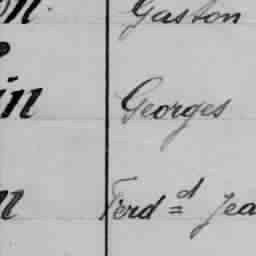 n. Gaston
in Georges
n Ferd^d = Jea